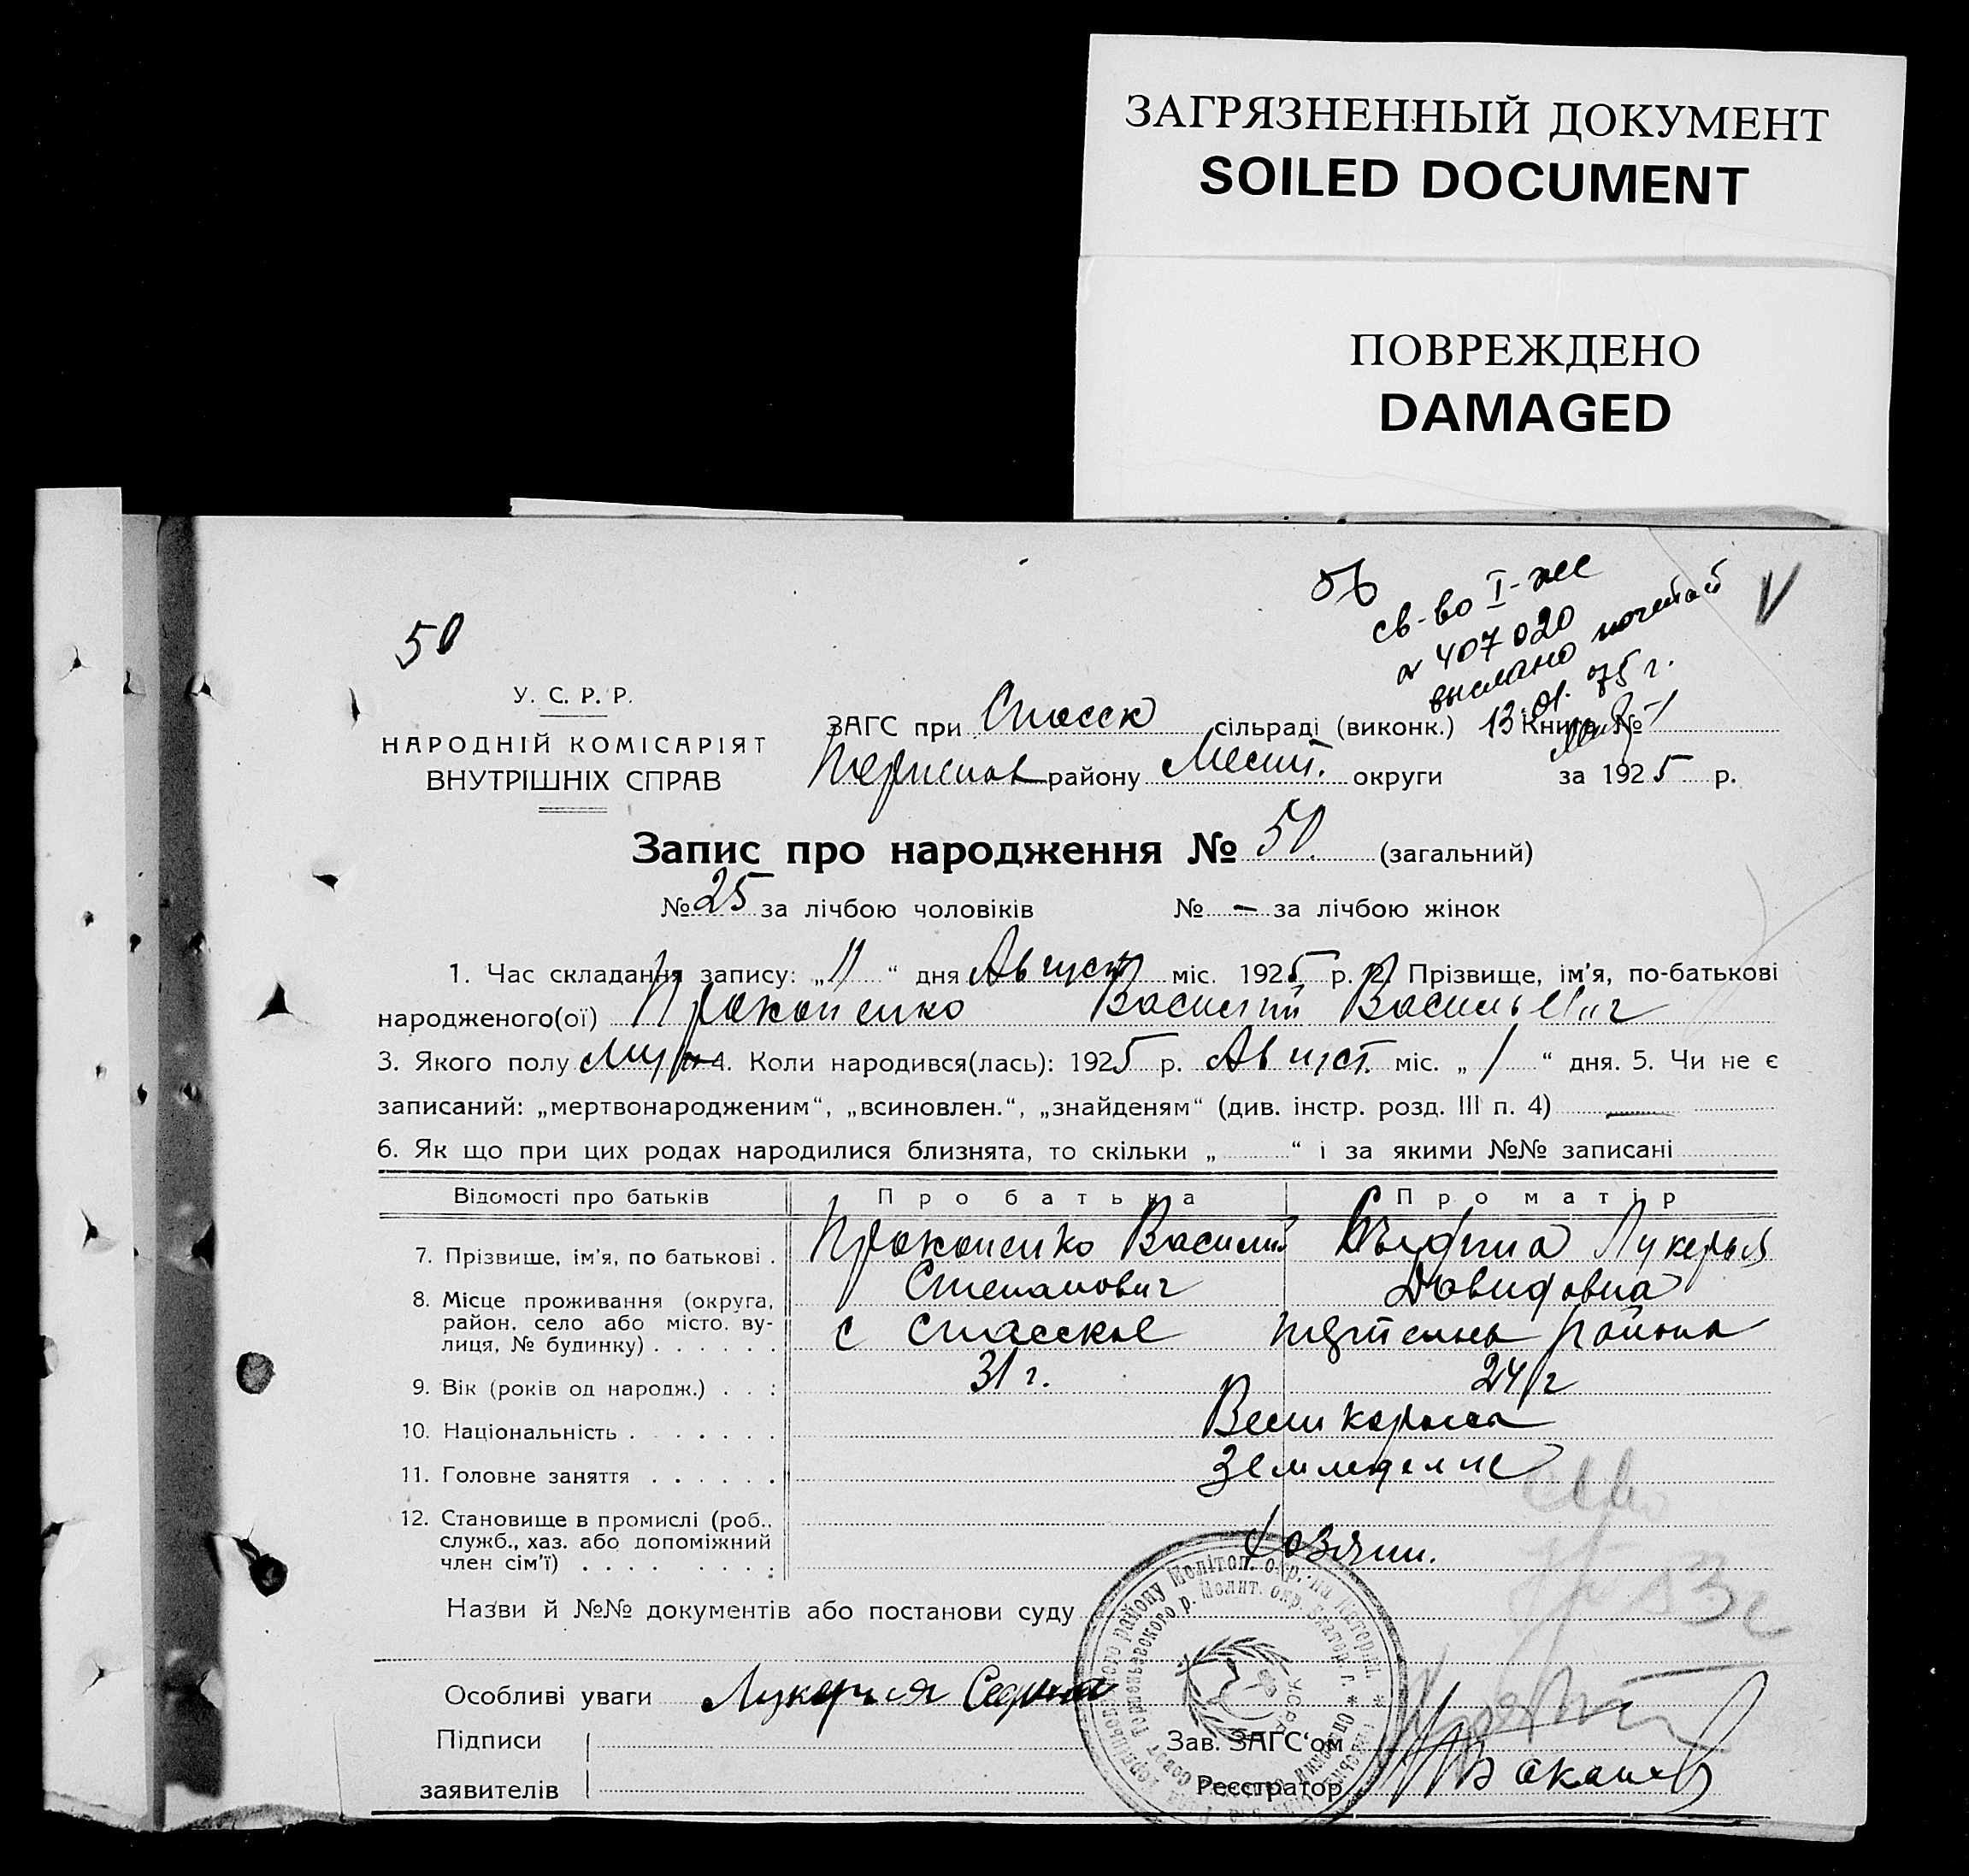 ЗАГРЯЗНЕННЫЙ ДОКУМЕНТ
SOILED DOCUMENT
ПОВРЕЖДЕНО
DAMAGED
св-во I-
407020
выслано почтой
13.01.75 г.
V
50
У. С. Р. Р.
НАРОДНІЙ КОМІСАРІЯТ
ВНУТРІШНІХ СПРАВ
ЗАГС при Спасск сільраді (виконк.) Книга № 1
району Мелит. округи за 1925 р.
Запис про народження № 50 (загальний)
№ 25 за лічбою чоловіків № — за лічбою жінок
1. Час складання запису: „11“ дня Август міс. 1925 р. 2. Прізвище, ім’я, по-батькові
народженого(ої) Прокопенко Василий Васильевич
3. Якого полу муж 4. Коли народився(лась): 1925 р. Август. міс. „1“ дня. 5. Чи не є
записаний: „мертвонародженим“, „всиновлен.“, „знайденям“ (див. інстр. розд. III п. 4) —
6. Як що при цих родах народилися близнята, то скільки „ “ і за якими №№ записані
Відомості про батьків Про батька Про матір
7. Прізвище, ім’я, по батькові . Прокопенко Василий Лукерья
Степанович Давидовна
8. Місце проживання (округа,
район, село або місто, ву-
лиця, № будинку) . . . . . . с Спасское района
9. Вік (років од народж.) . . . 31 г. 24 г
10. Національність . . . . . . . Великоросса
11. Головне заняття . . . . . . Земледелие
12. Становище в промислі (роб.,
служб., хаз. або допоміжний
член сім’ї) . . . . . . . . . Хозяин.
Назви й №№ документів або постанови суду
Особливі уваги Лукерия
Підписи
заявителів
Зав. ЗАГС‘ом
Реєстратор